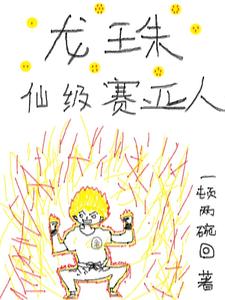 龙王朱
仙级赛亚人
一顿两碗回 著